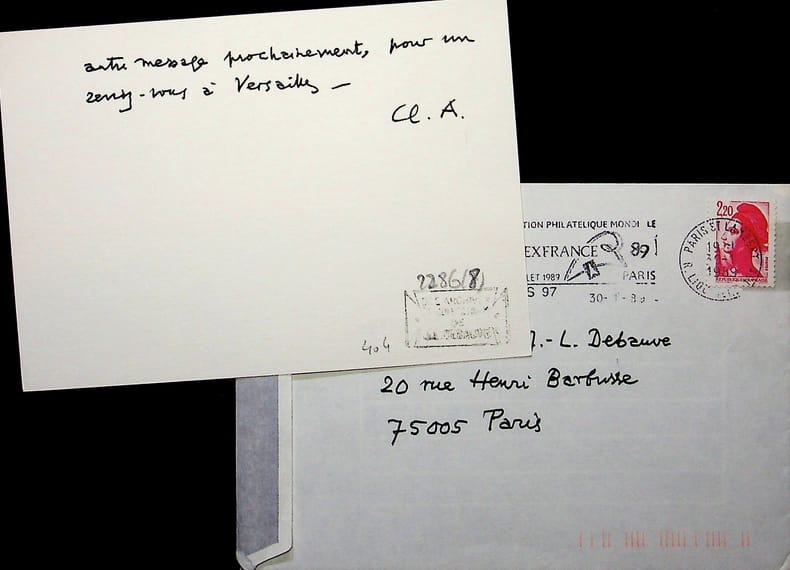 autre message prochainement, pour un
rendez-vous à Versailles —
Cl. A.
2286(8)
404
TION PHILATELIQUE MONDI LE
EXFRANCE 89
LET 1989 PARIS
S 97 30-
2,20
PARIS ET
19
1989
J.-L. Debauve
20 rue Henri Barbusse
75005 Paris